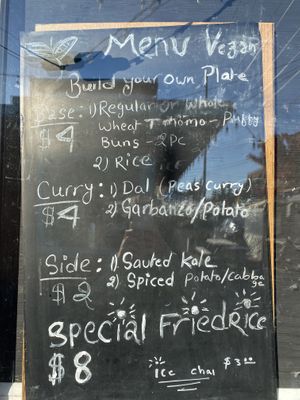 Menu Vegan
Build your own Plate
Base: 1) Regular or Whole
$4 Wheat Tomomo - Puffy
Buns - 2 Pc
2) Rice
Curry: 1) Dal (Peas Curry)
$4 2) Garbanzo/Potato
Side: 1) Sauted Kale
$2 2) Spiced Potato/Cabbage
Special FriedRice
$8
Ice chai $3.00